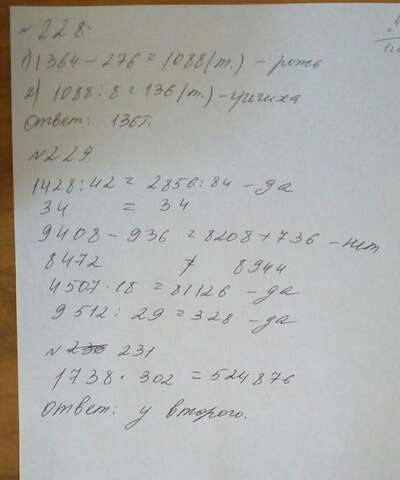 № 228
1) 1364 - 276 = 1088 (т.) - рожь
2) 1088 : 8 = 136 (т.) -
Ответ: 136т.
№ 229
1428 : 42 = 2856 : 84 - да
34 = 34
9408 - 936 = 8208 + 736 - нет
8472 ≠ 8944
4507 · 18 = 81126 - да
9512 : 29 = 328 - да
№ 230 231
1738 · 302 = 524876
Ответ: у второго.